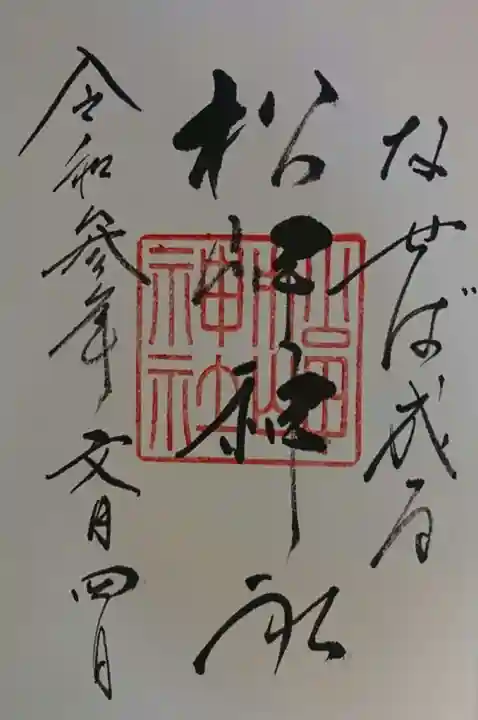 なせば成る
松岬神社
令和参年文月四日